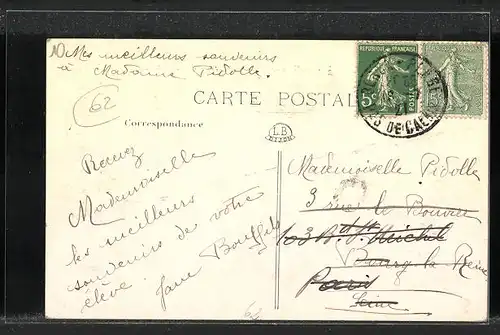 Mes meilleurs souvenirs
à Madame Pidolle.
62
RÉPUBLIQUE FRANÇAISE
POSTES
5c
15c
DE CAEN
CARTE POSTALE
Correspondance
LB
Recevez
Mademoiselle
les meilleurs
souvenirs de votre
élève.
Jane
Mademoiselle Pidolle
3 rue le Bouvier
103 Bd St Michel
Bourg la Reine
Paris
Seine